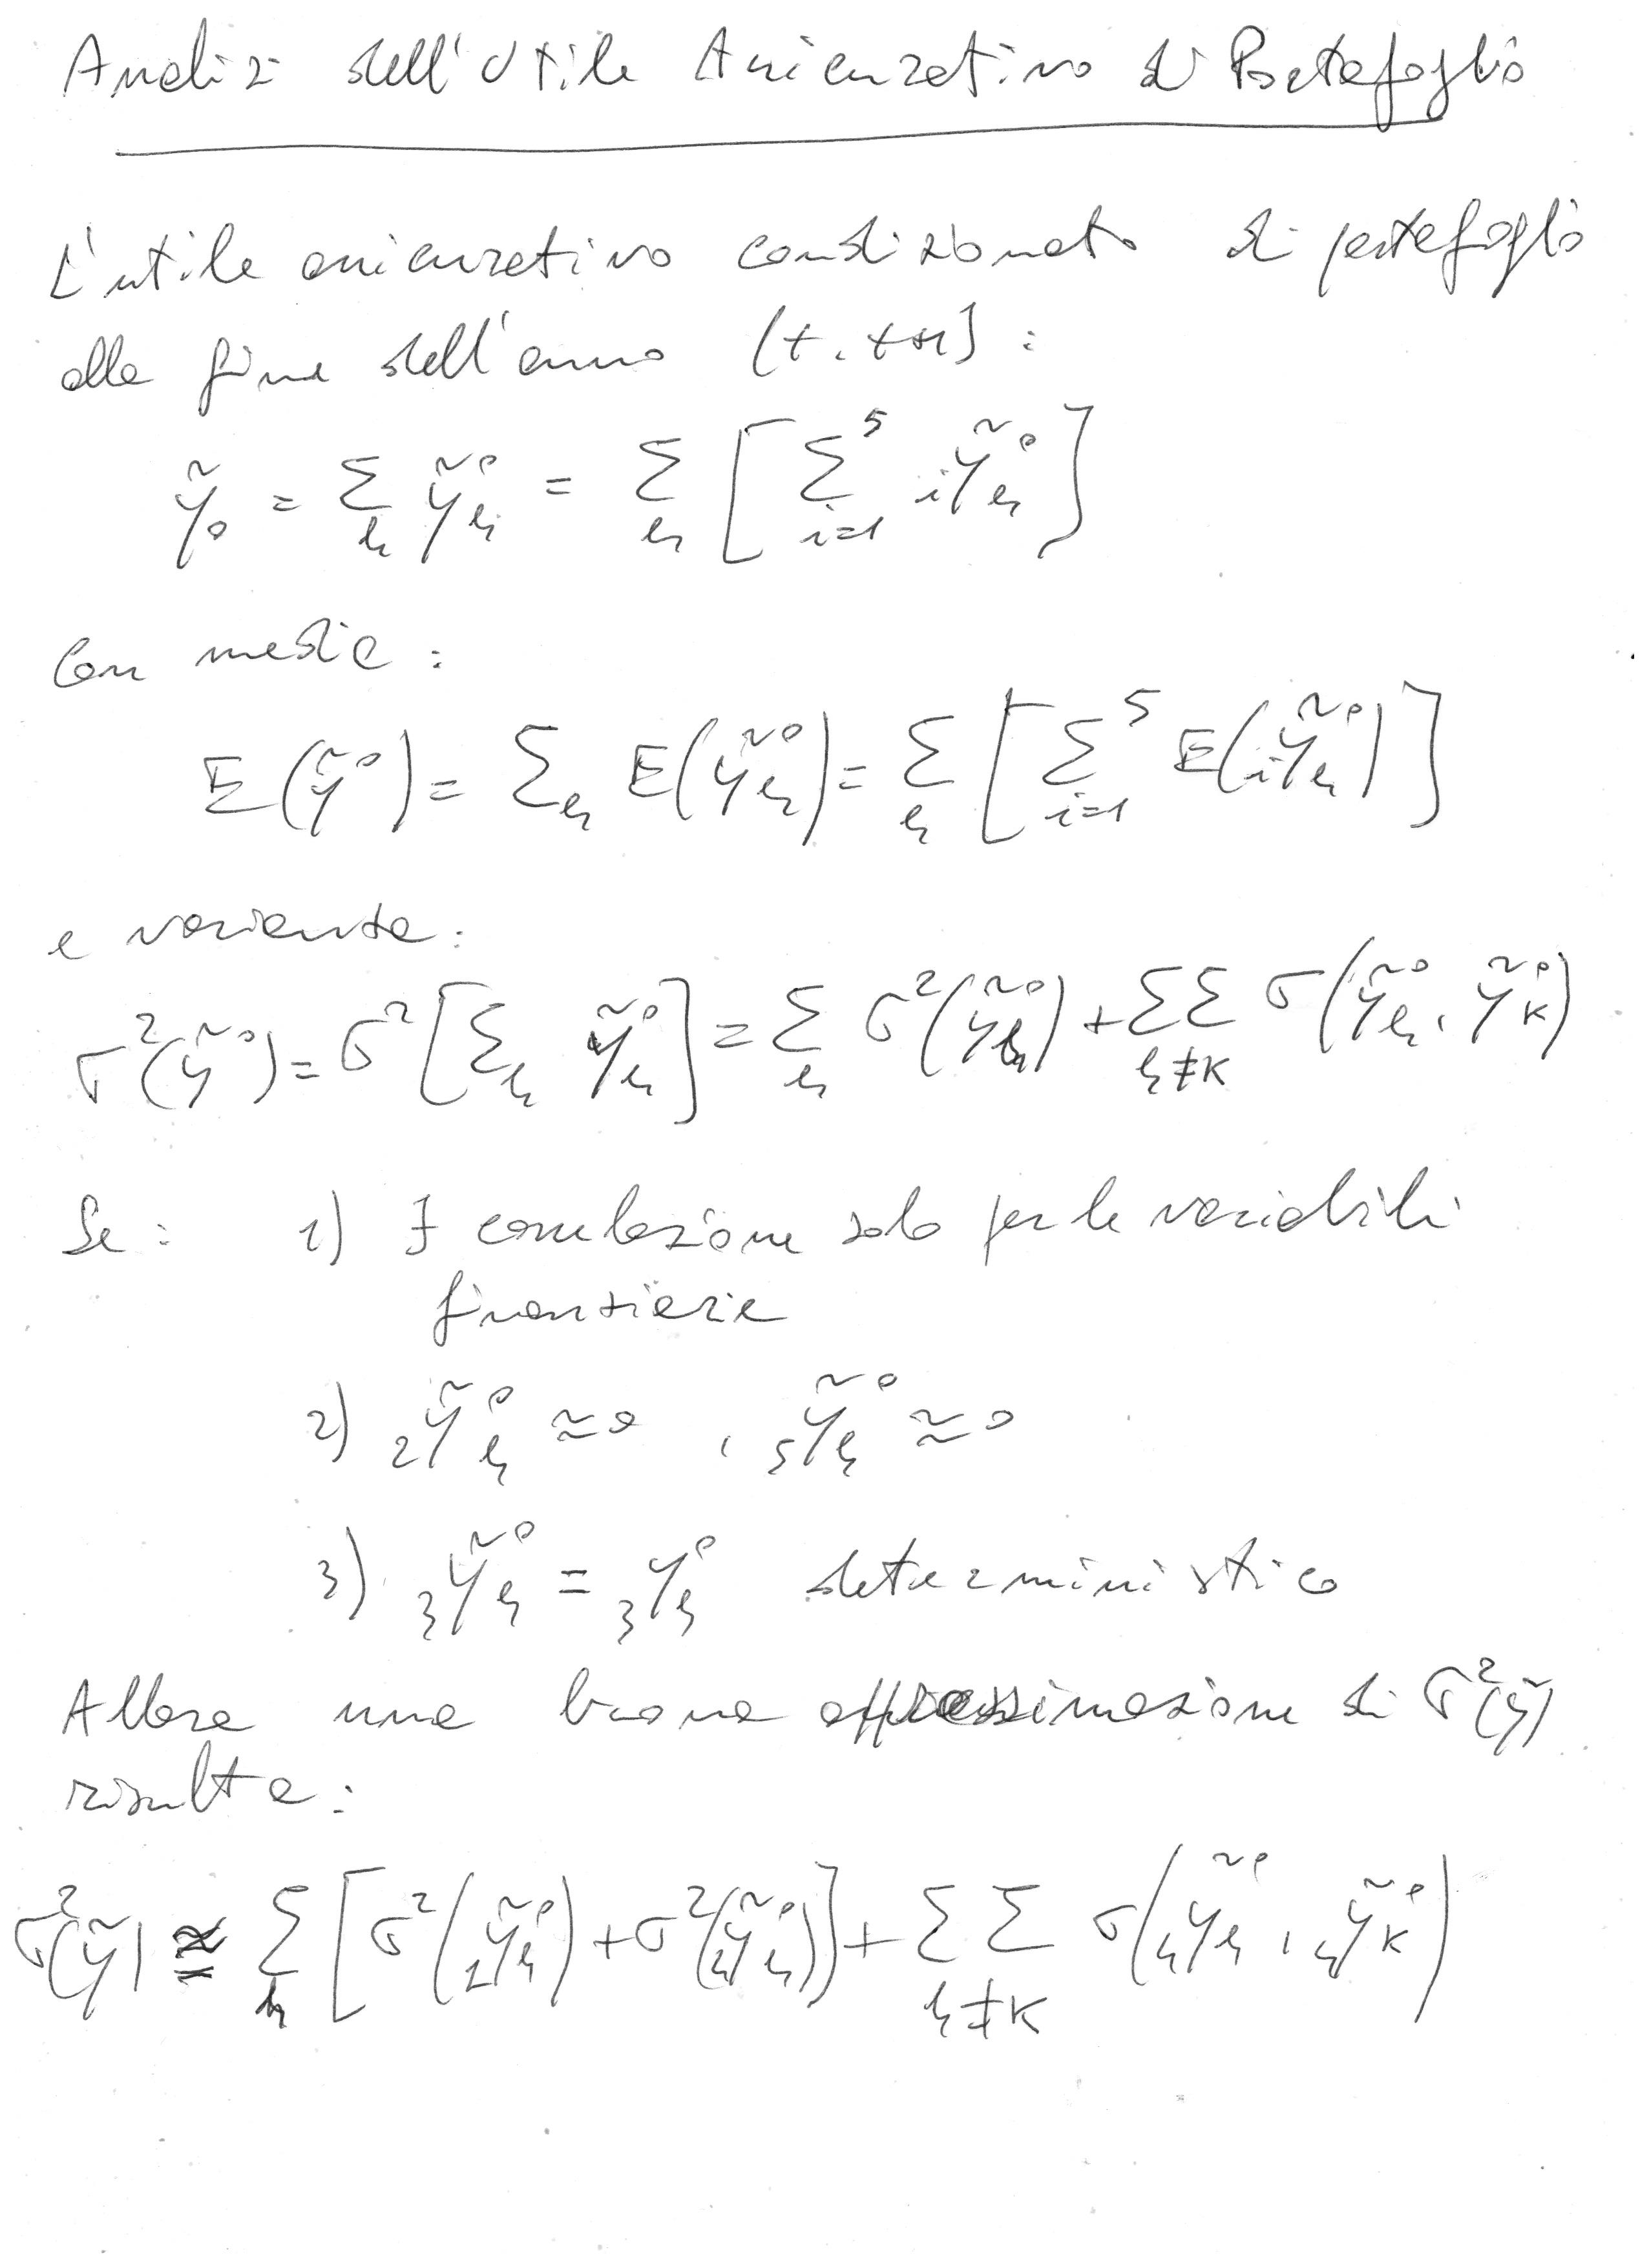 Analisi dell'Utile Assicurativo di Portafoglio
L'utile assicurativo condizionato di portafoglio
alla fine dell'anno (t, t+1] :
ỹ₀ = Σ_h ỹ°_h = Σ_h [ Σ_{i=1}^5 _iỹ°_h ]
Con media :
E(ỹ°) = Σ_h E(ỹ°_h) = Σ_h [ Σ_{i=1}^5 E(_iỹ°_h) ]
e varianza :
σ²(ỹ°) = σ²[ Σ_h ỹ°_h ] = Σ_h σ²(ỹ°_h) + ΣΣ_{h≠k} σ(ỹ°_h, ỹ°_k)
Se : 1) ∃ correlazione solo per le variabili
finanziarie
2) ₂ỹ°_h ≃ 0 , ₅ỹ°_h ≃ 0
3) ₃ỹ°_h = ₃y°_h deterministico
Allora una buona approssimazione di σ²(ỹ)
risulta :
σ²(ỹ) ≅ Σ_h [ σ²(₁ỹ°_h) + σ²(₄ỹ°_h) ] + ΣΣ_{h≠k} σ(₄ỹ°_h, ₄ỹ°_k)